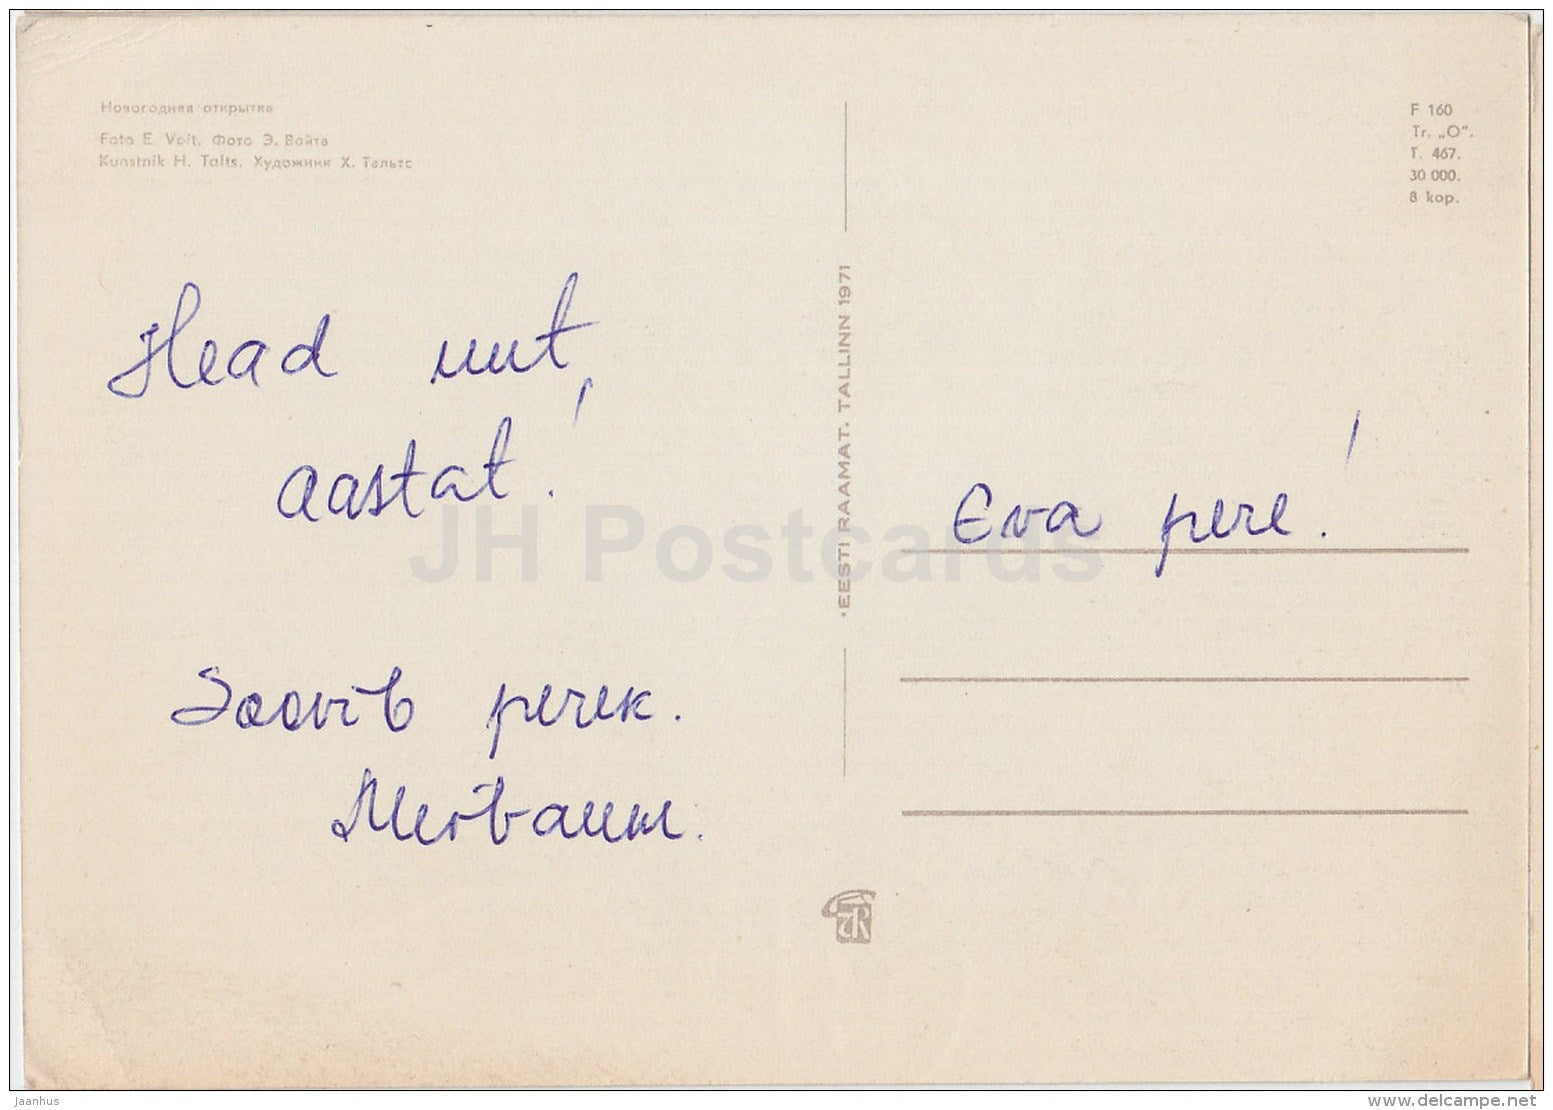 Новогодняя открытка
Foto E. Voit. Фото Э. Войта
Kunstnik H. Talts. Художник Х. Тальтс
F 160
Tr. „O".
T. 467.
30 000.
8 kop.
Head uut
aastat!
Soovib perek.
EESTI RAAMAT. TALLINN 1971
Eva pere!
JH Postcards
TR
Jaanhus
www.delcampe.net